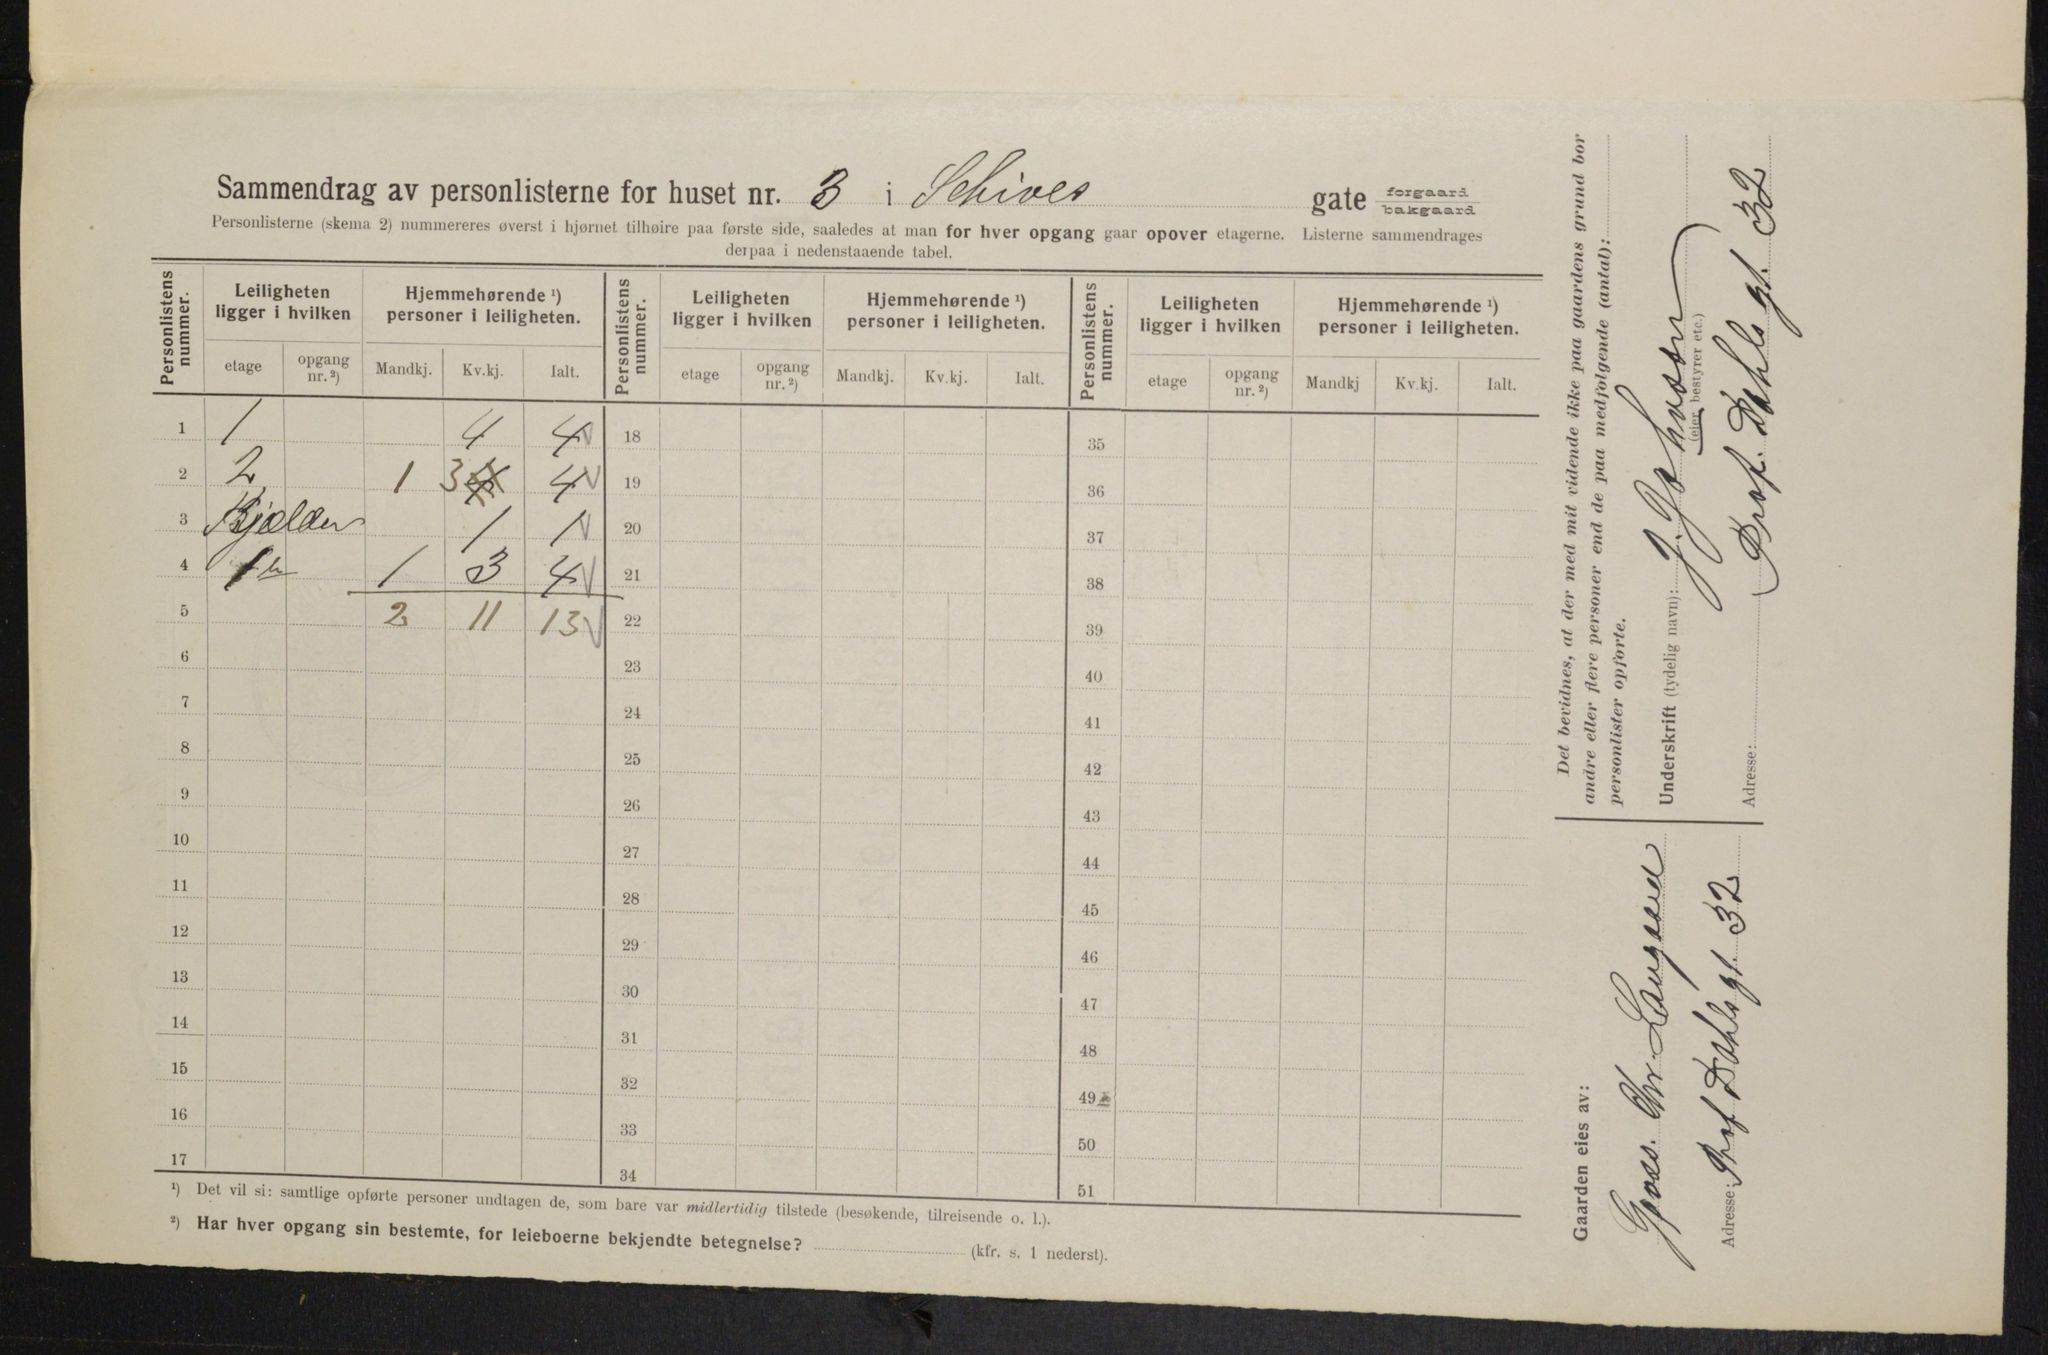 Sammendrag av personlisterne for huset nr. 3 i Schives gate forgaard bakgaard
Personlisterne (skema 2) nummereres øverst i hjørnet tilhøire paa første side, saaledes at man for hver opgang gaar opover etagerne. Listerne sammendrages
derpaa i nedenstaaende tabel.
Personlistens nummer. Leiligheten ligger i hvilken Hjemmehørende ¹) personer i leiligheten. Personlistens nummer. Leiligheten ligger i hvilken Hjemmehørende ¹) personer i leiligheten. Personlistens nummer. Leiligheten ligger i hvilken Hjemmehørende ¹) personer i leiligheten.
etage opgang nr. ²) Mandkj. Kv.kj. Ialt. etage opgang nr. ²) Mandkj. Kv.kj. Ialt. etage opgang nr. ²) Mandkj Kv.kj. Ialt.
1 1 4 4 18 35
2 2 1 3 4 4 19 36
3 Kjælder 1 1 20 37
4 1 3 4 21 38
5 2 11 13 22 39
6 23 40
7 24 41
8 25 42
9 26 43
10 27 44
11 28 45
12 29 46
13 30 47
14 31 48
15 32 49
16 33 50
17 34 51
¹) Det vil si: samtlige opførte personer undtagen de, som bare var midlertidig tilstede (besøkende, tilreisende o. l.).
²) Har hver opgang sin bestemte, for leieboerne bekjendte betegnelse? (kfr. s. 1 nederst).
Det bevidnes, at der med mit vidende ikke paa gaardens grund bor
andre eller flere personer end de paa medfølgende (antal):
personlister opførte.
Underskrift (tydelig navn): J. Johnsen
(eier, bestyrer etc.)
Adresse: Prof. Dahls gt. 32
Gaarden eies av:
Gross. Chr. Langaard
Adresse: Prof Dahls gt. 32